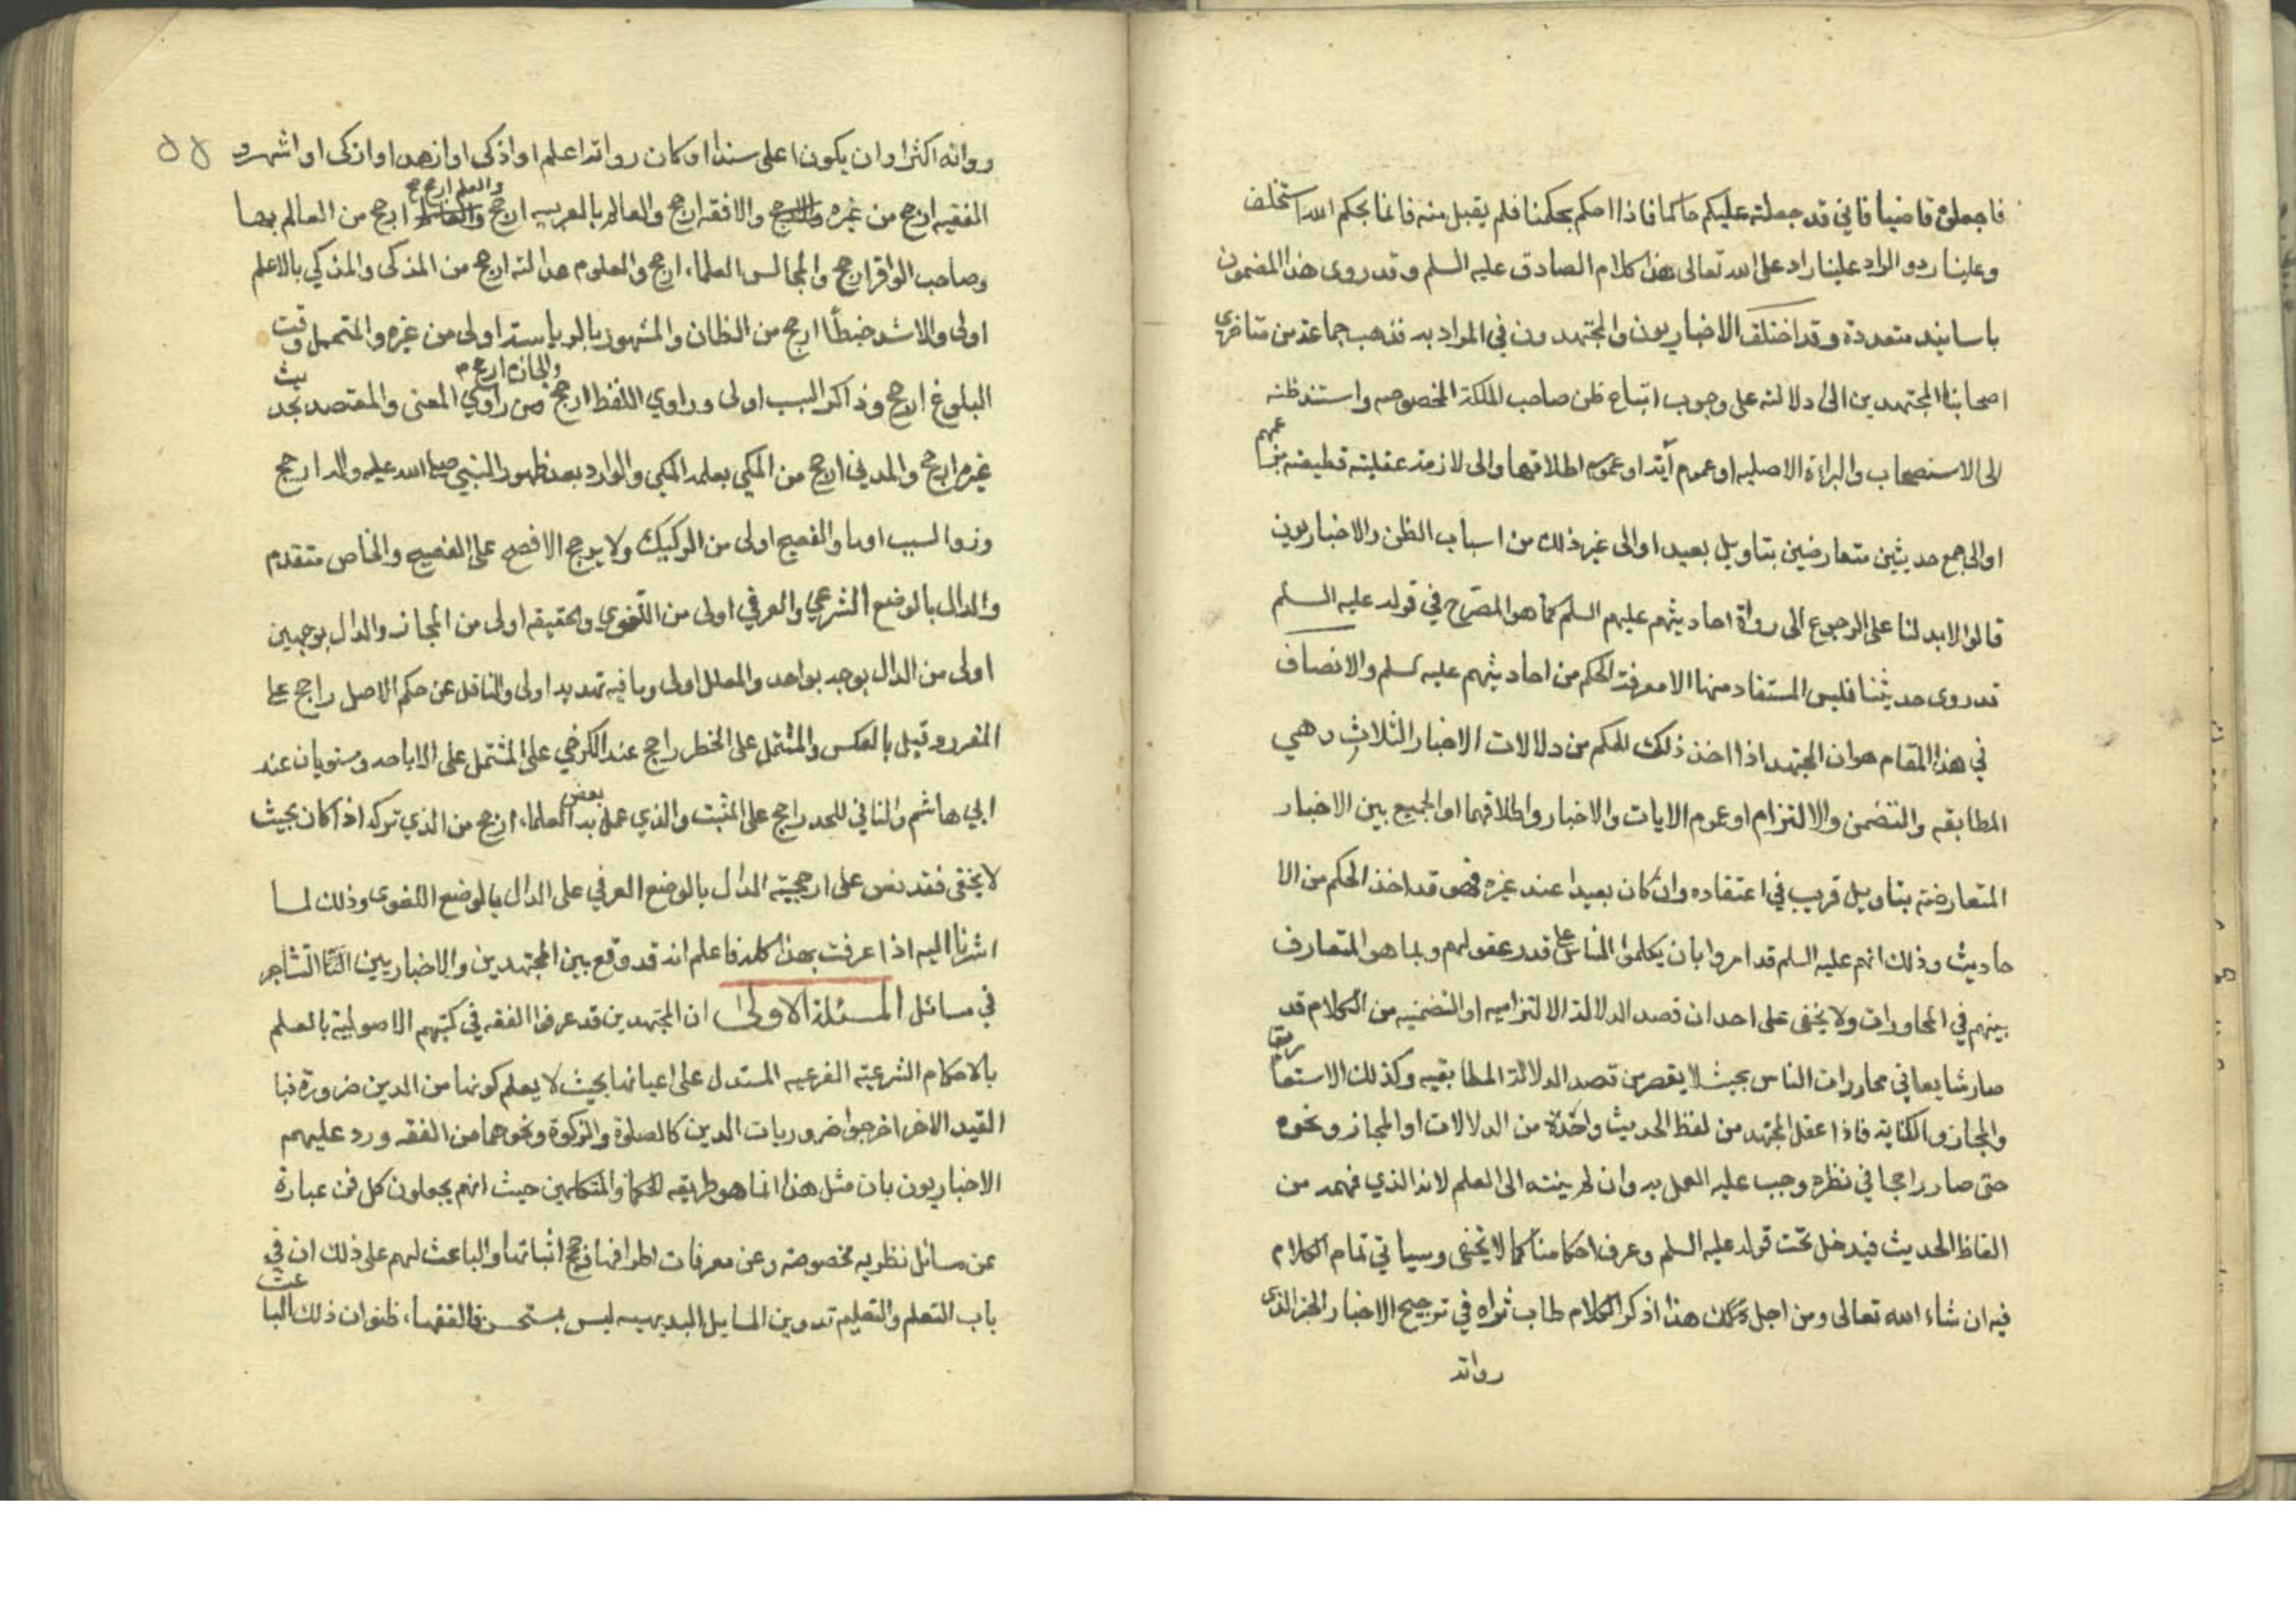 فاجعلوه قاضيا فاني قد جعلته عليكم حاكما فاذا احكم بحكمنا فلم يقبل منه فانما بحكم الله استخلف
وعلينا رد و الراد علينا راد على الله تعالى هذا كلام الصادق عليه السلم و قد روى هذا المضمون
باسانيد متعددة و قد اختلف الاخباريون والمجتهدون في المراد به فذهب جماعة من متاخري
اصحابنا المجتهدين الى دلالته على وجوب اتباع ظن صاحب الملكة المخصوصه واستند ظنه
الى الاستصحاب والبراءة الاصليه او عموم آية او عموم اطلاقها والى لازمة عقلية قطيعته
او الى جمع حديثين متعارضين بتاويل بعيد او الى غير ذلك من اسباب الظن والاخباريون
قالوا لابد لنا على الرجوع الى رواة احاديثهم عليهم السلم كما هو المصرح في قوله عليه السلم
قد روى حديثنا فليس المستفاد منها الا معرفة الحكم من احاديثهم عليه لسلم والانصاف
في هذا المقام هو ان المجتهد اذا اخذ ذلك الحكم من دلالات الاخبار الثلاث وهي
المطابقه والتضمن والالتزام او عموم الايات والاخبار واطلاقهما او الجميع بين الاخبار
المتعارضة بتاويل قريب في اعتقاده وان كان بعيدا عند غيره فهو قد اخذ الحكم من الا
حاديث وذلك انهم عليه السلم قد امروا بان يكلموا الناس على قدر عقولهم وبما هو المتعارف
بينهم في المحاورات ولا يخفى على احد ان قصد الدلالة الالتزاميه او التضمنيه من الكلام قد
صار شايعا في محاورات الناس بحيث لا يقصر من قصد الدلالة المطابقيه وكذلك الاستعارة
والمجاز والكناية فاذا عقل المجتهد من لفظ الحديث واحدة من الدلالات او المجاز ونحوه
حتى صار راجحا في نظره وجب عليه العمل به وان لم ينته الى العلم لانه الذي فهمه من
الفاظ الحديث فيدخل تحت قوله عليه السلم وعرف احكامنا كما لا يخفى وسياتي تمام الكلام
فيه ان شاء الله تعالى ومن اجل ذلك هذا اذكر الكلام طاب ثراه في ترجيح الاخبار الخبر الذي
رواته
رواته اكثر او ان يكون اعلى سندا او كان رواته اعلم او اذكى او ازهد او ازكى او اشهر و
الفقيه ارجح من غيره والافقه ارجح والعالم بالعربيه ارجح والعلم ارجح ارجح من العالم بها
وصاحب الواقع ارجح والمجالس العلماء ارجح والمعلوم عدالته ارجح من المذكى والمذكي بالاعلم
اولى والاشد ضبطًا ارجح من الظان والمشهور بالرياسة اولى من غيره والمتحمل وقت
البلوغ ارجح وذاكر السبب اولى وراوي اللفظ ارجح من راوي المعنى والمعتضد بحديث
غيره ارجح والمدني ارجح من المكي والوارد بعد ظهور النبي صلى الله عليه واله ارجح
وذو السبب اولى والفصيح اولى من الركيك ولا يرجح الافصح على الفصيح والخاص متقدم
والدال بالوضع الشرعي والعرفي اولى من اللغوي والحقيقه اولى من المجاز والدال بوجهين
اولى من الدال بوجه بواحد والمعلل اولى وما فيه تهديد اولى والناقل عن حكم الاصل راجح على
المقرر وقيل بالعكس والمشتمل على الخطر راجح عند الكرخي على المشتمل على الاباحه ومستويان عند
ابي هاشم والنافي للحد راجح على المثبت والذي عمل به بعض العلماء ارجح من الذي تركه اذا كان بحيث
لا يخفى فقد نص على ارجحية الدال بالوضع العرفي على الدال بالوضع اللغوي وذلك لما
اشرنا اليه اذا عرفت بهذا كله فاعلم انه قد وقع بين المجتهدين والاخباريين التشاجر
في مسائل المسئلة الاولى ان المجتهدين قد عرفوا الفقه في كتبهم الاصولية بالعلم
بالاحكام الشرعية الفرعيه المستدل على اعيانها بحيث لا يعلم كونها من الدين ضرورة فبا
القيد الاخر اخرجوا ضروريات الدين كالصلوة والزكوة ونحوهما من الفقه ورد عليهم
الاخباريون بان مثل هذا انما هو طريقه الحكما والمتكلمين حيث انهم يجعلون كل فن عبارة
عن مسائل نظريه مخصوصة وعن معرفات اطرافها اثباتها والباعث لهم على ذلك ان في
باب التعلم والتعليم تدوين المسايل البديهيه ليس بمستحسن فالفقهاء ظنوا ان ذلك الباعث